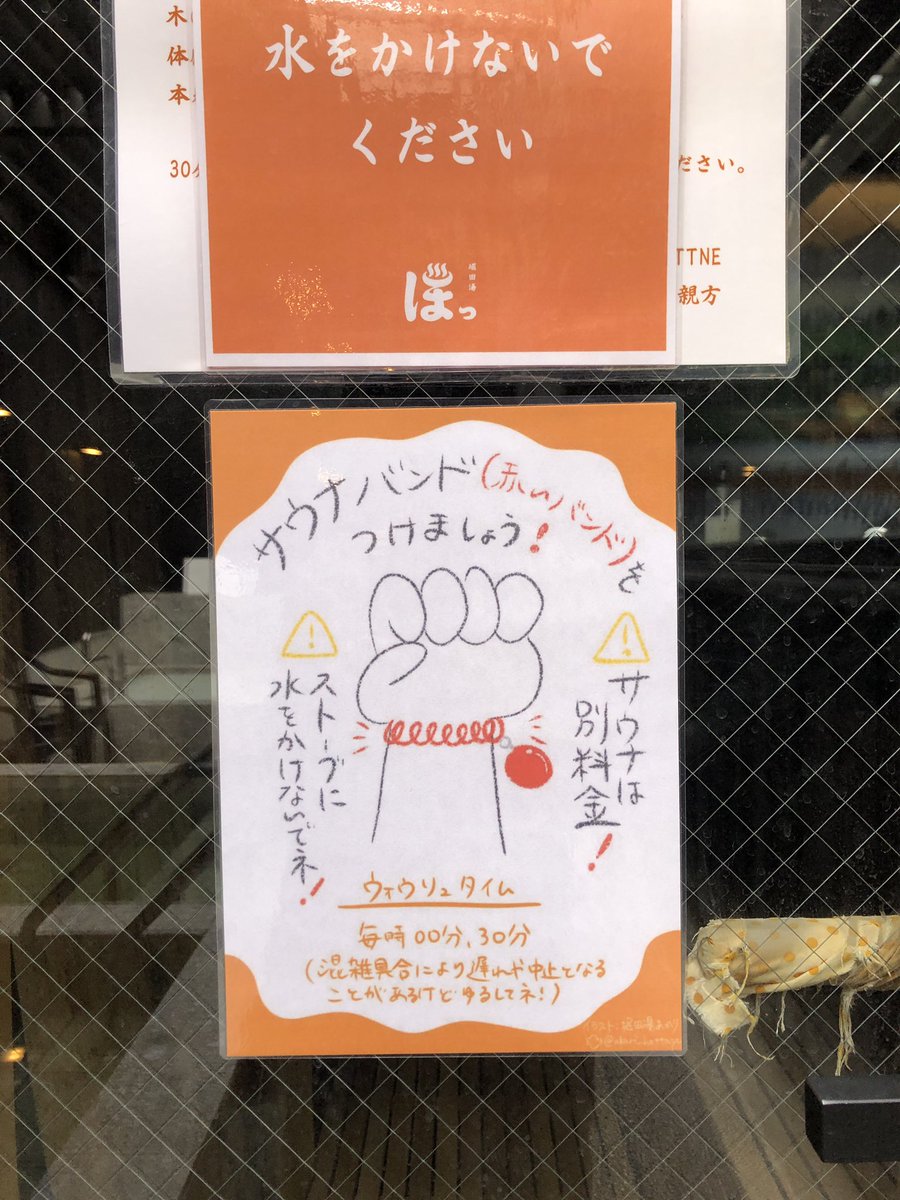 木
体
本
30
水をかけないで
ください
ください。
TTNE
親方
堀田湯
ほっ
サウナバンド(赤いバンド)を
つけましょう!
ストーブに
水をかけないでネ!
サウナは
別料金!
ウォウリュタイム
毎時00分、30分
(混雑具合により遅れや中止となる
ことがあるけどゆるしてネ!)
イラスト:堀田湯あかり